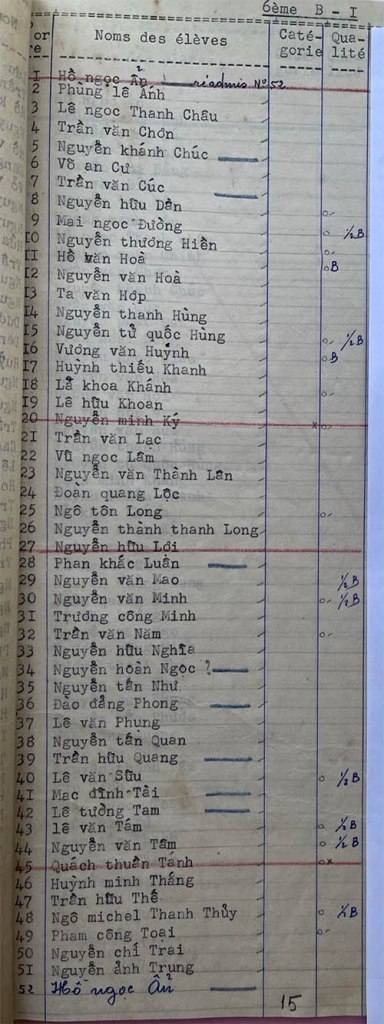 6ème B - I
or Noms des élèves Caté- Qua-
re gorie lité
I Hồ ngọc Ẩn réadmis N° 52
2 Phùng lê Ánh
3 Lê ngọc Thanh Châu
4 Trần văn Chơn
5 Nguyễn khánh Chúc
6 Võ an Cư
7 Trần văn Cúc
8 Nguyễn hữu Dần
9 Mai ngọc Đường ½B
I0 Nguyễn thương Hiền
II Hồ văn Hoà B
I2 Nguyễn văn Hoà
I3 Ta văn Hớp
I4 Nguyễn thanh Hùng
I5 Nguyễn tử quốc Hùng ½B
I6 Vương văn Huỳnh B
I7 Huỳnh thiếu Khanh
I8 Lã khoa Khánh
I9 Lê hữu Khoan
20 Nguyễn minh Ký x
2I Trần văn Lạc
22 Vũ ngọc Lâm
23 Nguyễn văn Thành Lân
24 Đoàn quang Lộc
25 Ngô tôn Long
26 Nguyễn thành thanh Long
27 Nguyễn hữu Lới
28 Phan khắc Luân
29 Nguyễn văn Mao ½B
30 Nguyễn văn Minh ½B
3I Trương công Minh
32 Trần văn Năm
33 Nguyễn hữu Nghĩa
34 Nguyễn hoàn Ngọc ?
35 Nguyễn tấn Như
36 Đào đảng Phong
37 Lê văn Phung
38 Nguyễn tấn Quan
39 Trần hữu Quang
40 Lê văn Sửu ½B
4I Mạc đình Tài
42 Lê tường Tam
43 lê văn Tám ½B
44 Nguyễn văn Tâm ½B
45 Quách thuần Tánh x
46 Huỳnh minh Thắng
47 Trần hữu Thế
48 Ngô michel Thanh Thủy ½B
49 Pham công Toại
50 Nguyễn chí Trai
5I Nguyễn ảnh Trung
52 Hồ ngọc Ẩn
15